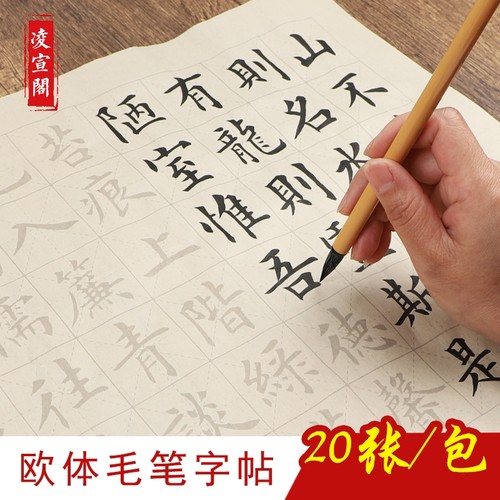 凌宣閣
山不
則名水
有龍則斯是
陋室惟吾德馨
苔痕上階綠
入簾青談
儒往
欧体毛笔字帖
20张/包